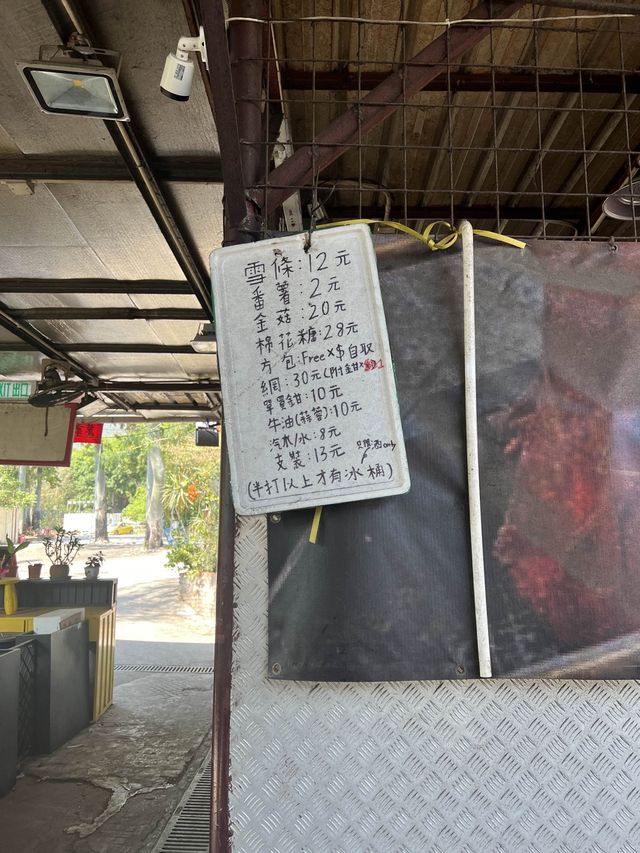 雪條:12元
番薯:2元
金菇:20元
棉花糖:28元
方包:Free×$自取
網:30元(附金甘×1
單買鉗:10元
牛油(蒜蓉):10元
汽水/水:8元
支裝:13元
只限酒only
(半打以上才有冰桶)
出口